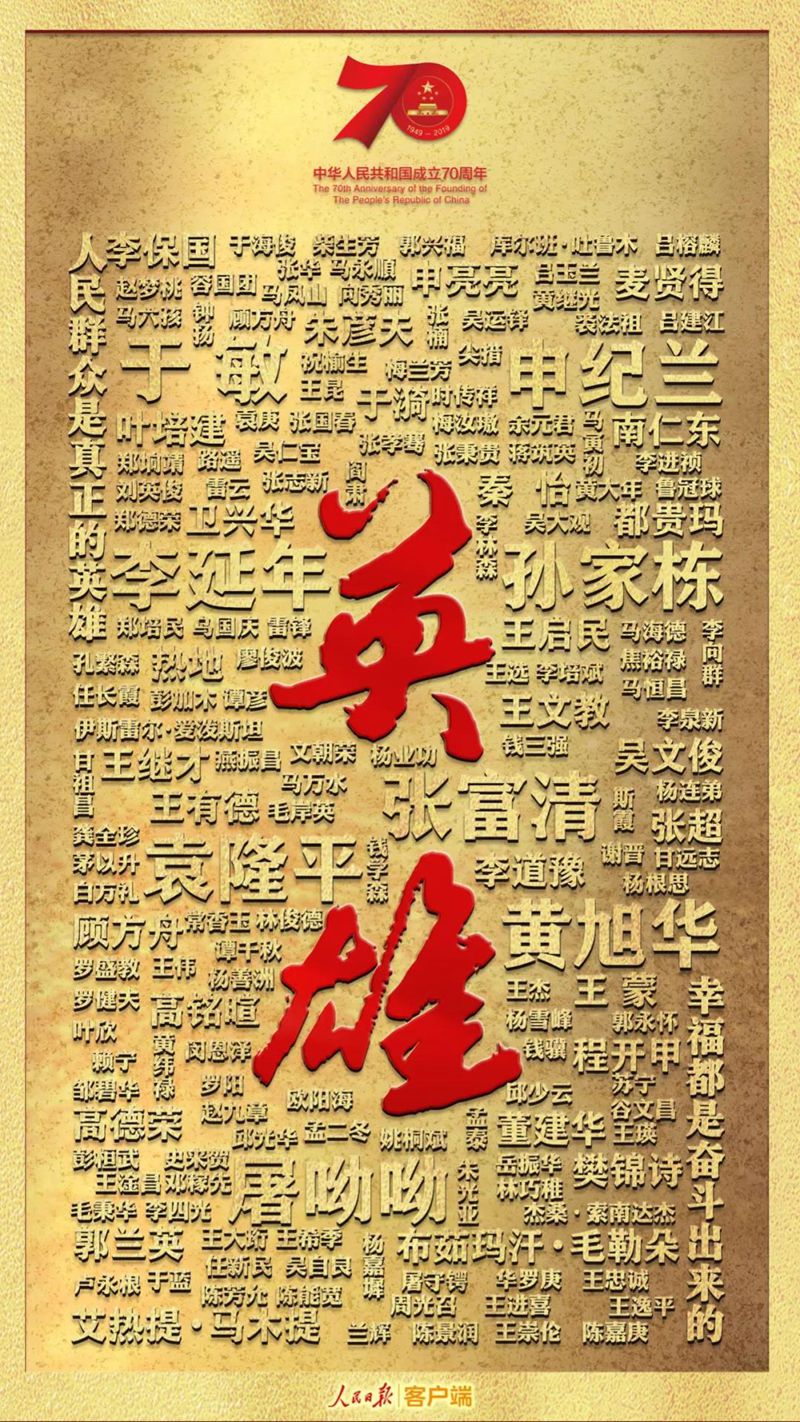 1949-2019
中华人民共和国成立70周年
The 70th Anniversary of the Founding of
The People's Republic of China
人民群众是真正的英雄
李保国 于海俊 柴生芳 郭兴福 库尔班·吐鲁木 吕榕麟
张华 马永顺 申亮亮 吕玉兰 麦贤得
赵梦桃 容国团 马凤山 向秀丽 黄继光
马六孩 钟扬 顾方舟 朱彦夫 张楠 吴运铎 裘法祖 吕建江
于敏 祝榆生 梅兰芳 尖措 申纪兰
王昆 于漪 时传祥
叶培建 袁庚 张国春 梅汝璈 余元君 马寅初 南仁东
郑垧靖 路遥 吴仁宝 张孝骞 张秉贵 蒋筑英 李进祯
刘英俊 雷云 张志新 阎肃 秦怡 黄大年 鲁冠球
郑德荣 卫兴华 李林森 吴大观 都贵玛
李延年 孙家栋
郑培民 乌国庆 雷锋 王启民 马海德 李向群
孔繁森 热地 廖俊波 王选 李培斌 焦裕禄
任长霞 彭加木 谭彦 王文教 马恒昌
伊斯雷尔·爱泼斯坦 李泉新
甘祖昌 王继才 燕振昌 文朝荣 杨业功 钱三强 吴文俊
王有德 马万水 毛岸英 张富清 斯霞 杨连弟
龚全珍 张超
茅以升 袁隆平 钱学森 李道豫 谢晋 甘远志
白万礼 杨根思
顾方舟 常香玉 林俊德 黄旭华
谭千秋
罗盛教 王伟 杨善洲 王杰 王蒙
罗健夫 高铭暄 杨雪峰 郭永怀
叶欣 黄纬禄 闵恩泽 钱骥 程开甲
赖宁
邹碧华 罗阳 欧阳海 邱少云 苏宁
高德荣 赵九章 孟泰 董建华 谷文昌
邱光华 孟二冬 姚桐斌 王瑛
彭桓武 史来贺 朱光亚 岳振华 樊锦诗
王淦昌 邓稼先 屠呦呦 林巧稚
毛秉华 李四光 杰桑·索南达杰
郭兰英 王大珩 王希季 杨嘉墀 布茹玛汗·毛勒朵
任新民 吴自良
卢永根 于蓝 屠守锷 华罗庚 王忠诚
陈芳允 陈能宽 周光召 王进喜 王逸平
艾热提·马木提 兰辉 陈景润 王崇伦 陈嘉庚
幸福都是奋斗出来的
英雄
人民日报 客户端